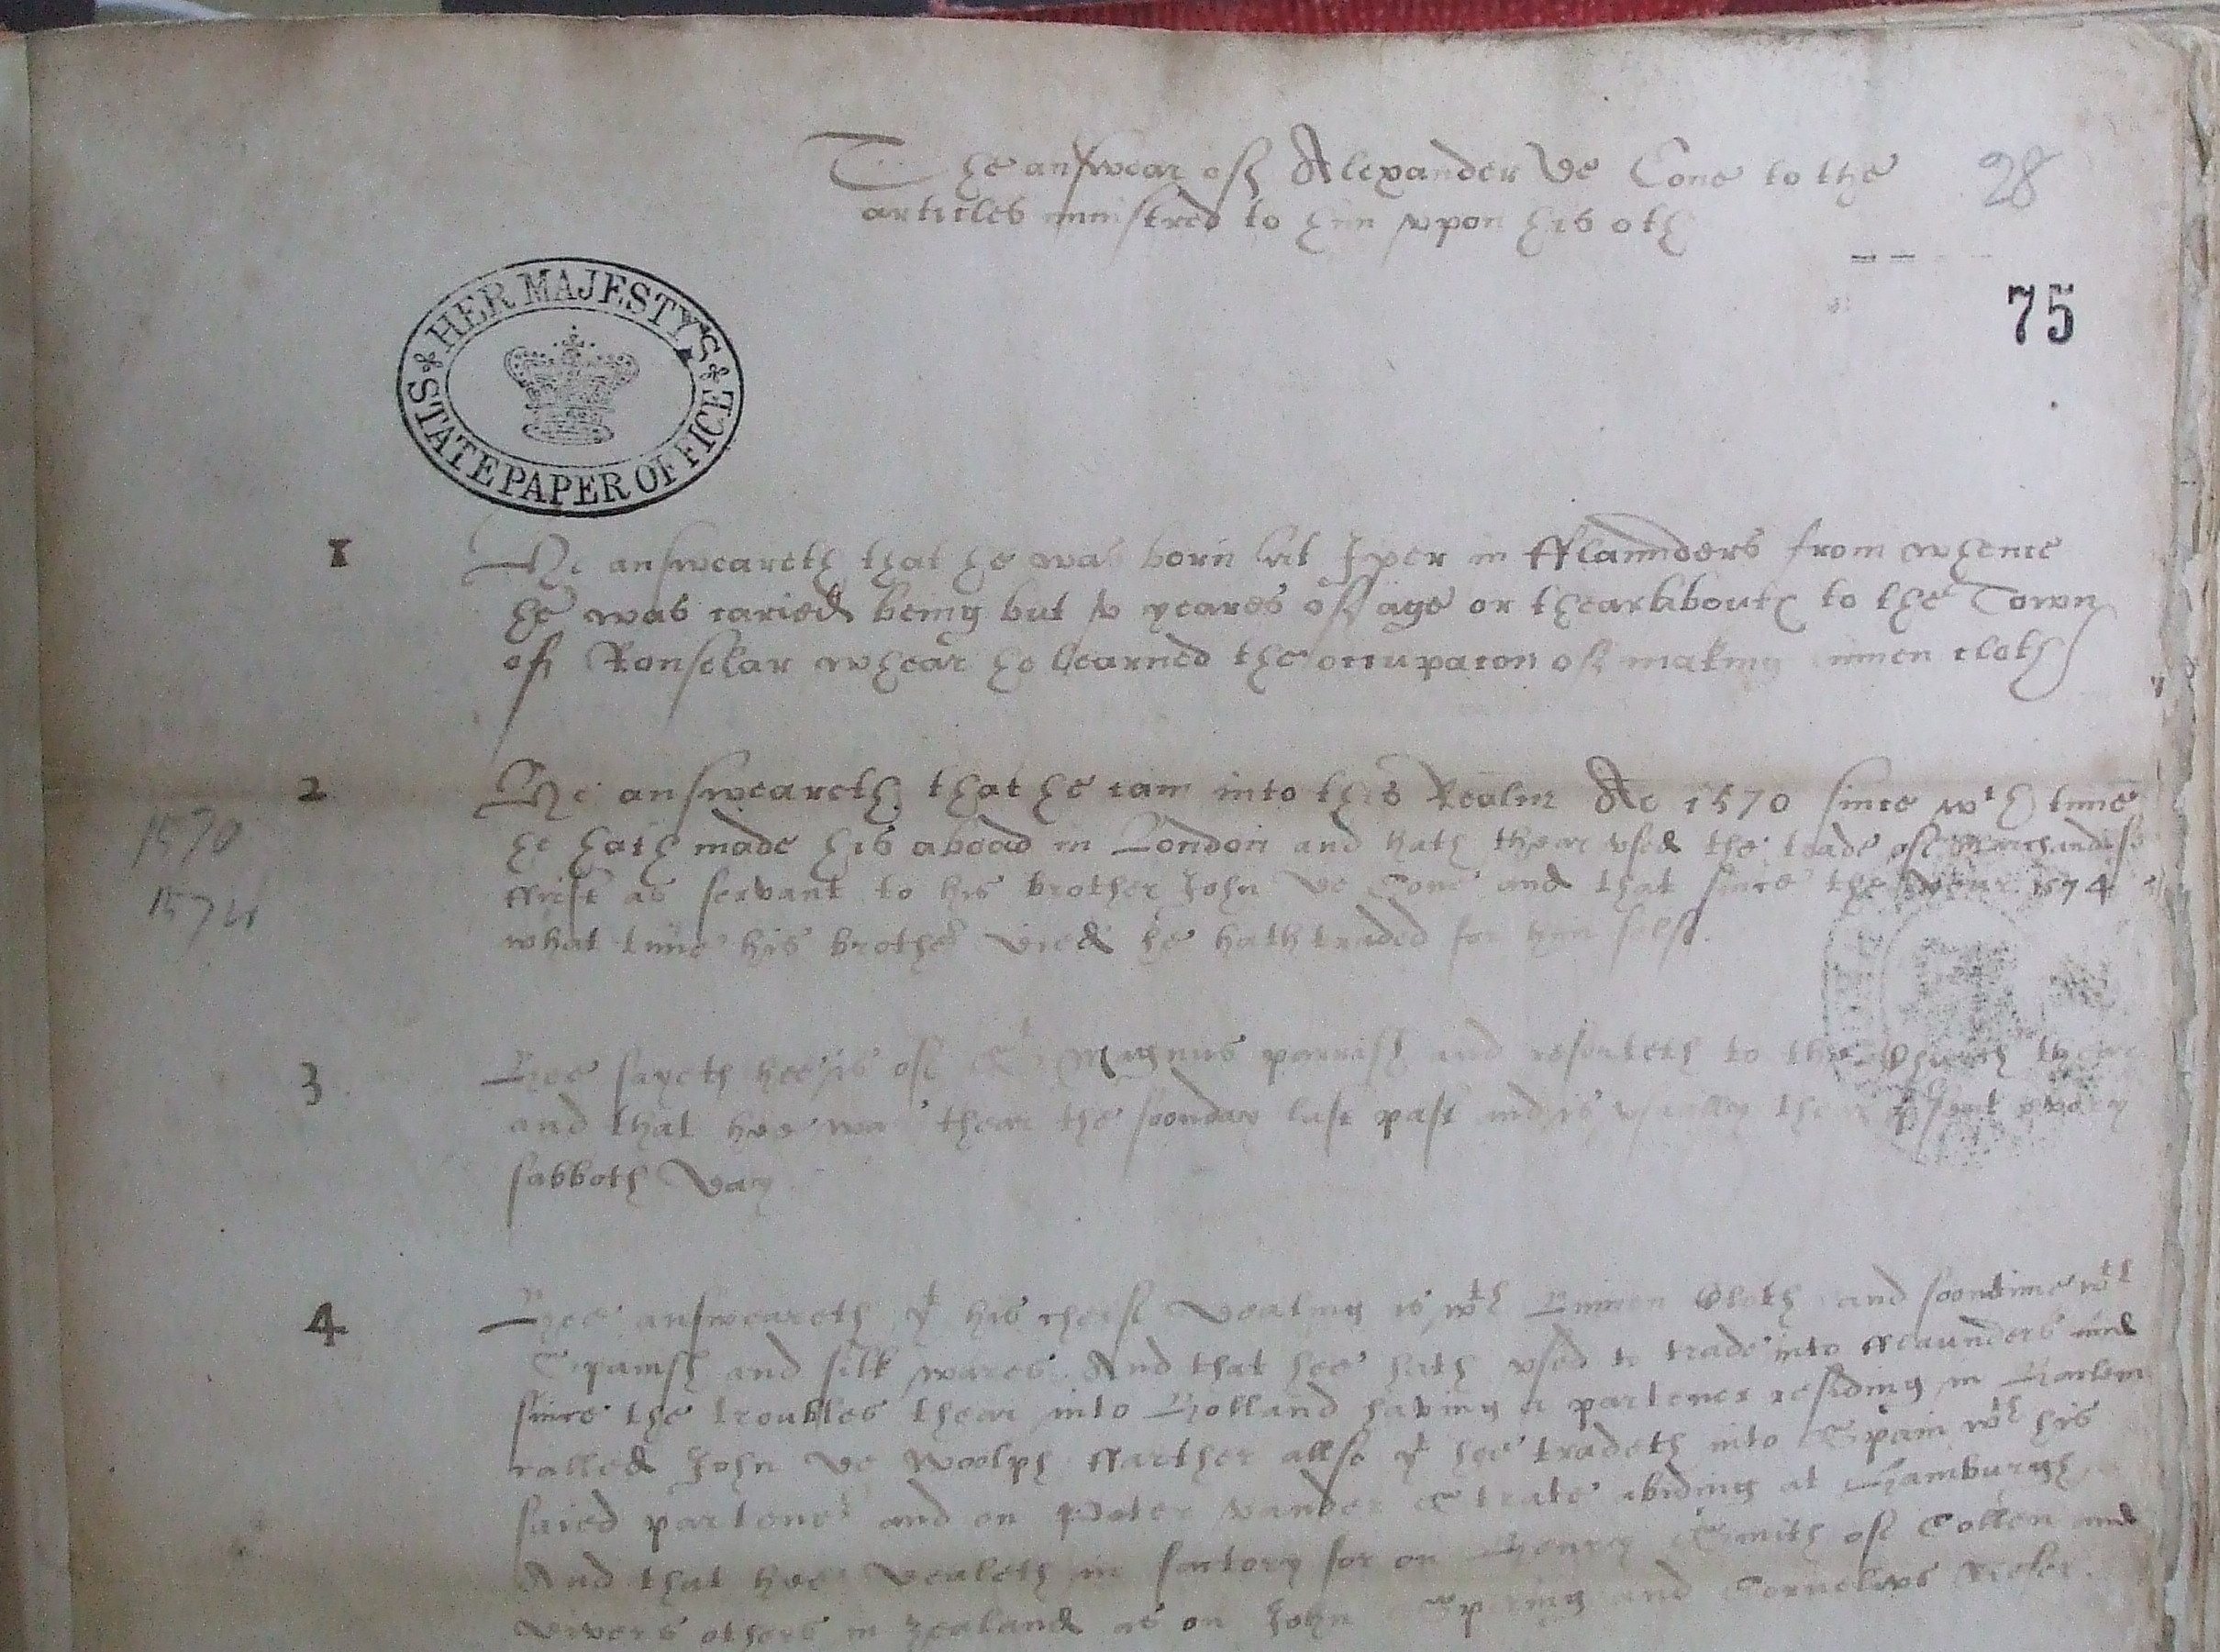 The answear off Alexander de Cone to the
articles ministred to him vpon his oth
28
75
HER MAJESTY'S
STATE PAPER OFFICE
1 He answeareth that he was born at Iper in fflaunders from whence
he was caried being but v yeares off age or thearabouts to the Town
off Ronselar whear he learned the occupacon off making linnen cloth
2 He answeareth that he cam into this Realm Ao 1570 since wth time
1570
he hath made his aboad in London and hath thear vsed the trade off Marchandise
1574
ffirst as servant to his brother John de Cone and that since the year 1574 at
what time his brother died he hath traded for him self.
3 Hee sayeth hee is off St Magnus parrish and resorteth to the Church theare
and that hee was thear the soonday last past and is vsually thear present every
sabboth day
4 Hee answeareth yt his cheif dealing is wth Linnen Cloth and soomtime wth
Spanish and silk wares. And that hee hath vsed to trade into fflaunders and
since the troubles thear into Holland having a partener residing in Harlem
called John de Woolph ffarther allso yt hee tradeth into Spain wth his
saied partener and on Peter vander Strate abiding at Hamburgh
And that hee dealeth in factory for on Henry Smith off Collen and
divers others in Zealand as on John Spering and Cornelius